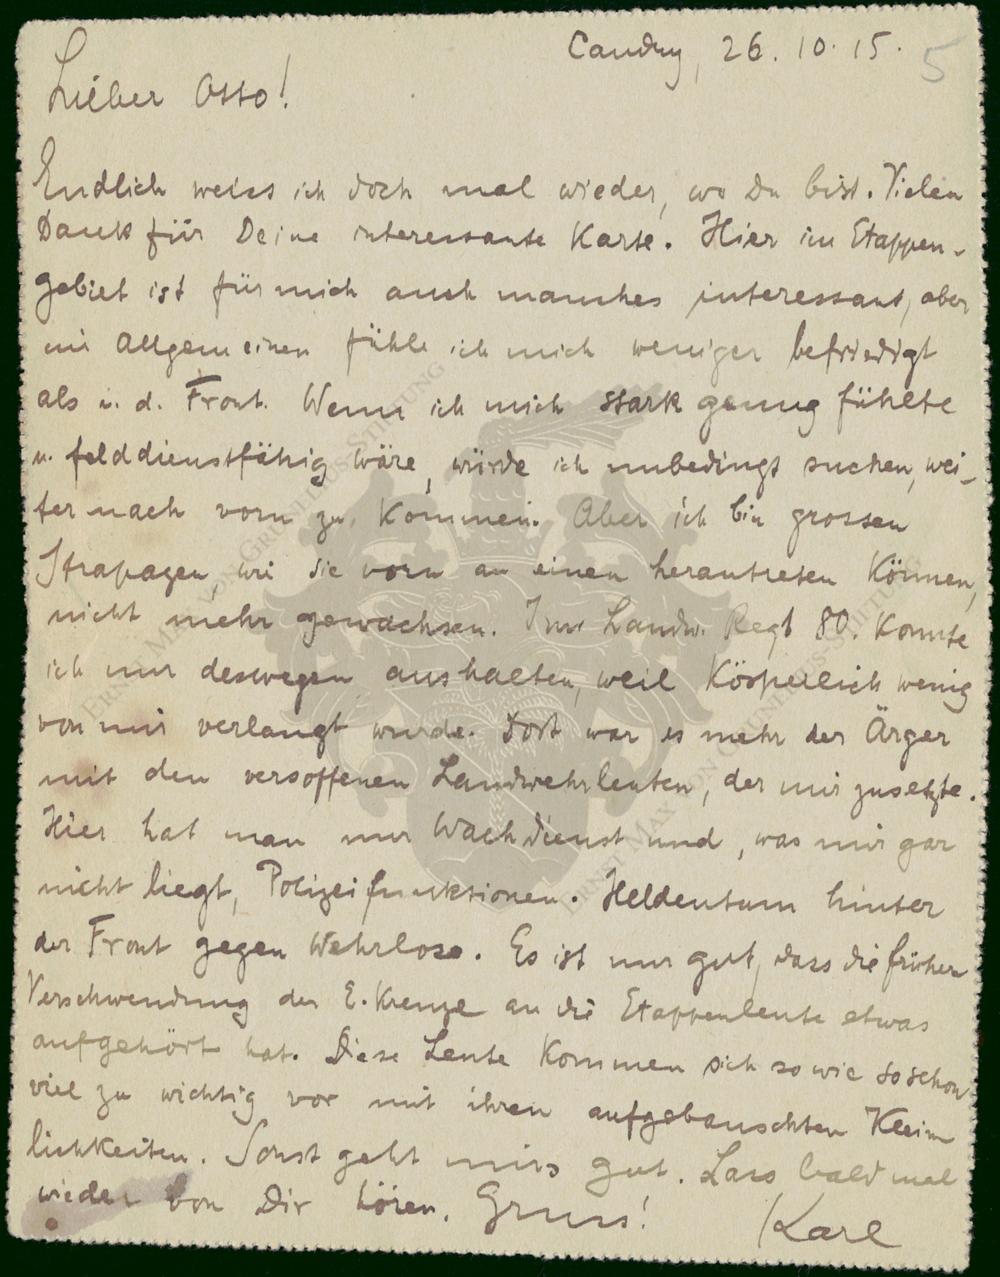 Caudry, 26. 10. 15.
5
Lieber Otto!
Endlich weiss ich doch mal wieder, wo Du bist. Vielen
Dank für Deine interessante Karte. Hier im Etappen-
gebiet ist für mich auch manches interessant, aber
im Allgemeinen fühle ich mich weniger befriedigt
als i. d. Front. Wenn ich mich stark genug fühlte
u. felddienstfähig wäre, würde ich unbedingt suchen, wei-
ter nach vorn zu kommen. Aber ich bin grossen
Strapazen, wie sie vorn an einen herantreten können,
nicht mehr gewachsen. Im Landw. Regt 80. konnte
ich nur deswegen aushalten, weil körperlich wenig
von mir verlangt wurde. Dort war es mehr der Ärger
mit den versoffenen Landwehrleuten, der mir zusetzte.
Hier hat man nur Wachdienst und, was mir gar
nicht liegt, Polizeifunktionen. Heldentum hinter
der Front gegen Wehrlose. Es ist nur gut, dass die frühere
Verschwendung der E. Kreuze an die Etappenleute etwas
aufgehört hat. Diese Leute kommen sich sowieso schon
viel zu wichtig vor mit ihren aufgebauschten Klein
lichkeiten. Sonst geht mirs gut. Lass bald mal
wieder von Dir hören. Gruss!
Karl
ERNST MAX VON GRUNELIUS-STIFTUNG
ERNST MAX VON GRUNELIUS-STIFTUNG